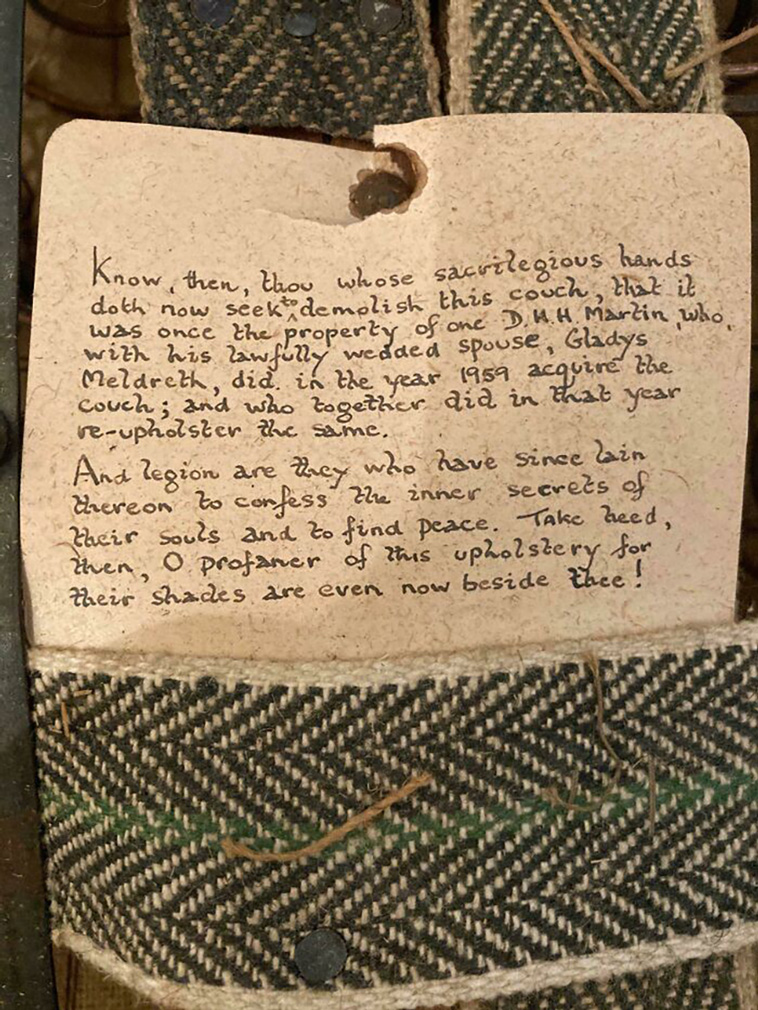 Know, then, thou whose sacrilegious hands
doth now seek to demolish this couch, that it
was once the property of one D.H.H. Martin, who,
with his lawfully wedded spouse, Gladys
Meldreth, did. in the year 1959 acquire the
couch; and who together did in that year
re-upholster the same.
And legion are they who have since lain
thereon to confess the inner secrets of
their souls and to find peace. Take heed,
then, O profaner of this upholstery for
their shades are even now beside thee!